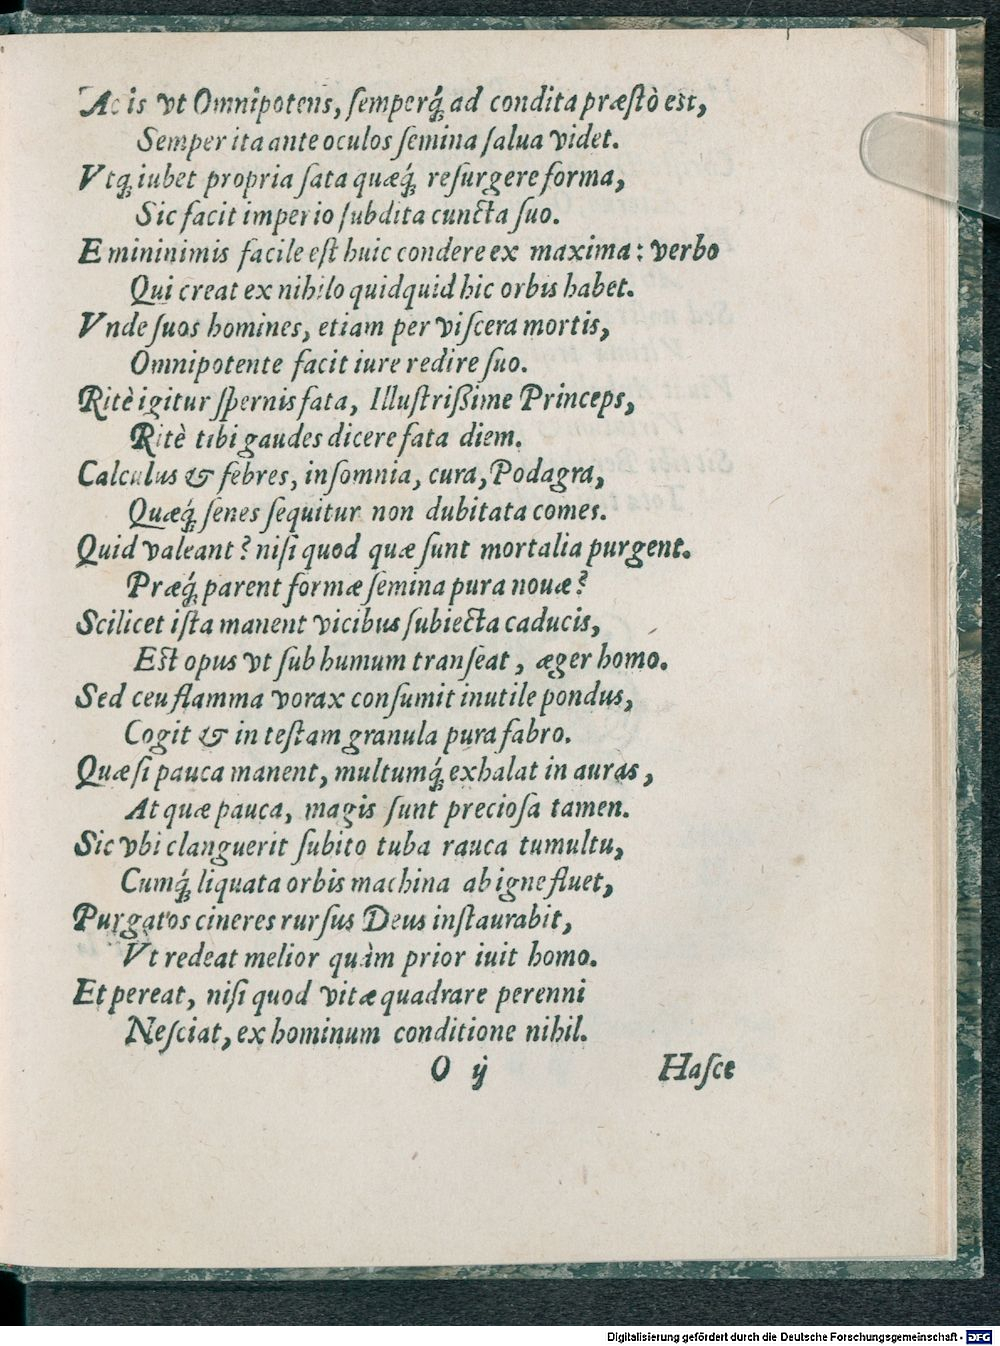 Ac is vt Omnipotens, ſemperq́; ad condita præſtò est,
Semper ita ante oculos ſemina ſalua videt.
Vtq; iubet propria ſata quæq́; reſurgere forma,
Sic facit imperio ſubdita cuncta ſuo.
E mininimis facile eſt huic condere ex maxima: verbo
Qui creat ex nihilo quidquid hic orbis habet.
Vnde ſuos homines, etiam per viſcera mortis,
Omnipotente facit iure redire ſuo.
Ritè igitur ſpernis fata, Illuſtrißime Princeps,
Ritè tibi gaudes dicere fata diem.
Calculus & febres, inſomnia, cura, Podagra,
Quæq́; ſenes ſequitur non dubitata comes.
Quid valeant? niſi quod quæ ſunt mortalia purgent.
Præq́; parent formæ ſemina pura nouæ?
Scilicet iſta manent vicibus ſubiecta caducis,
Est opus vt ſub humum tranſeat, æger homo.
Sed ceu flamma vorax conſumit inutile pondus,
Cogit & in teſtam granula pura fabro.
Quæ ſi pauca manent, multumq́; exhalat in auras,
At quæ pauca, magis ſunt precioſa tamen.
Sic vbi clanguerit ſubito tuba rauca tumultu,
Cumq́; liquata orbis machina ab igne fluet,
Purgatos cineres rurſus Deus inſtaurabit,
Vt redeat melior quàm prior iuit homo.
Et pereat, niſi quod vitæ quadrare perenni
Neſciat, ex hominum conditione nihil.
O ij Haſce
Digitalisierung gefördert durch die Deutsche Forschungsgemeinschaft - DFG